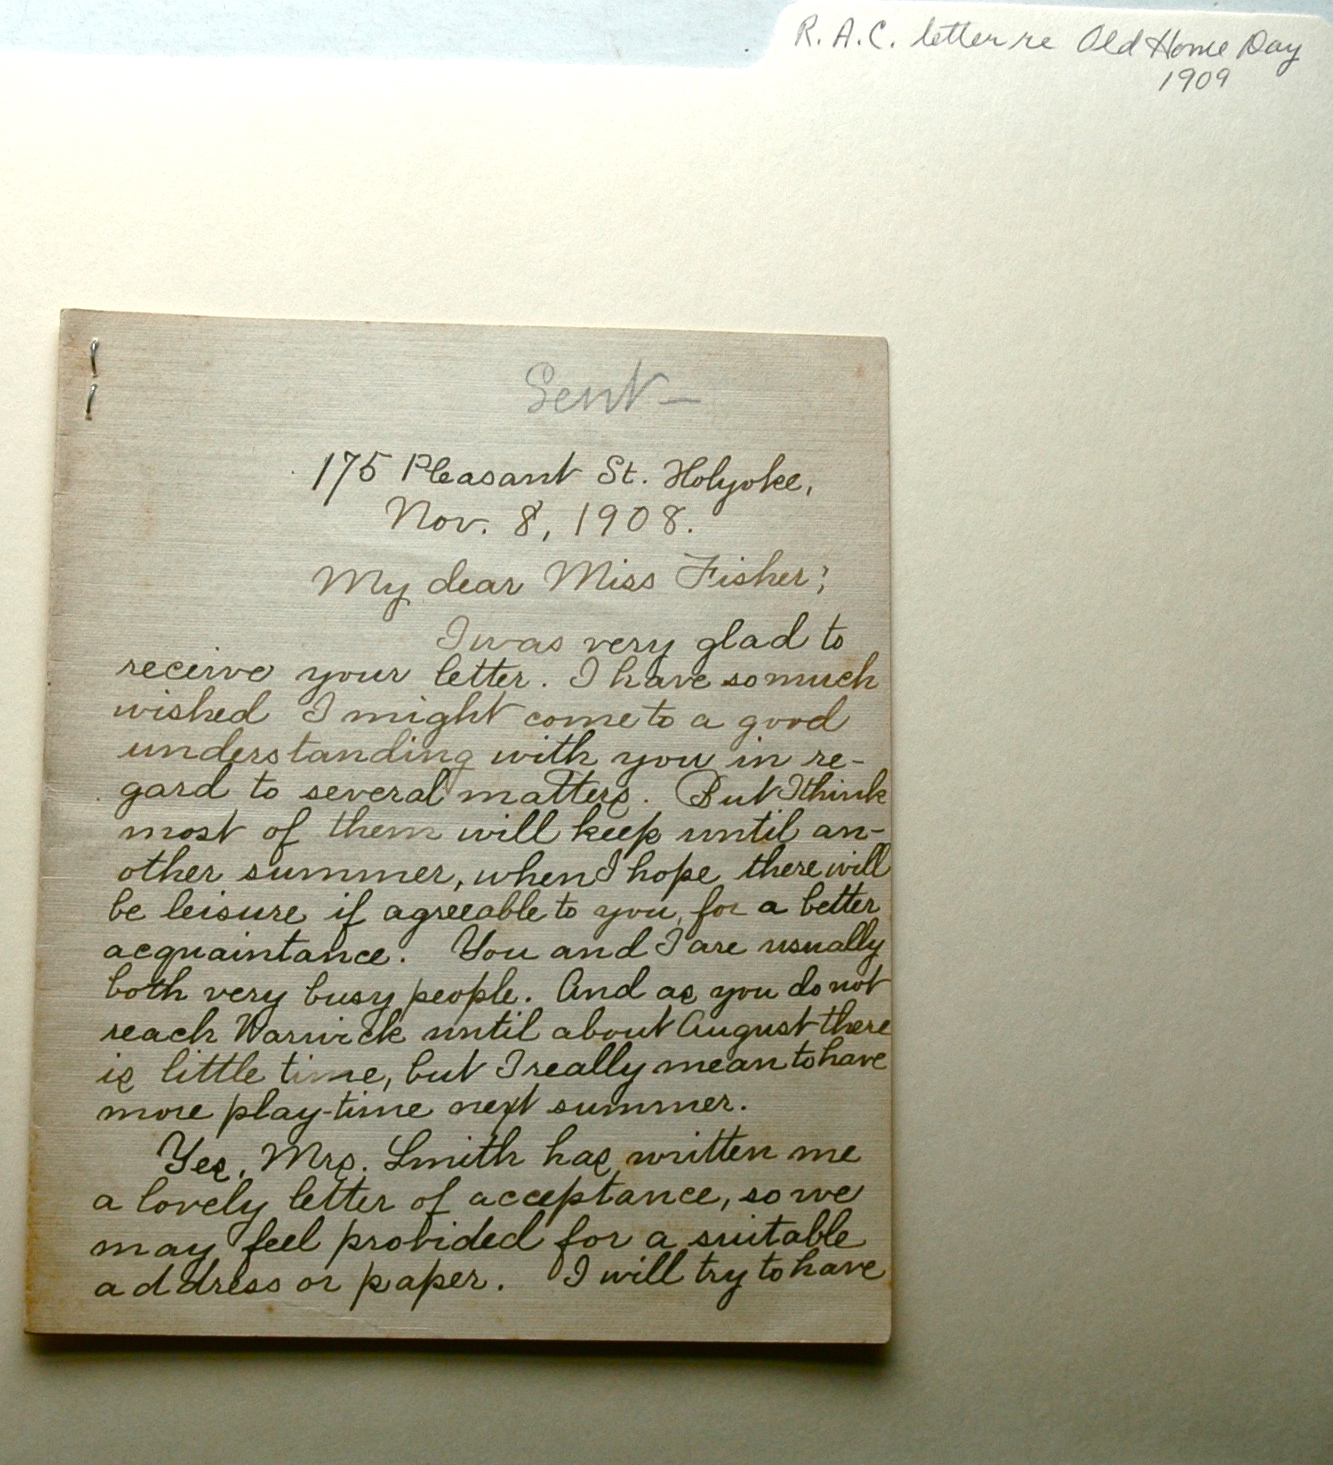 R. A. C. letter re Old Home Day
1909
Sent—
175 Pleasant St. Holyoke,
Nov. 8, 1908.
My dear Miss Fisher;
I was very glad to
receive your letter. I have so much
wished I might come to a good
understanding with you in re-
gard to several matters. But I think
most of them will keep until an-
other summer, when I hope there will
be leisure if agreeable to you, for a better
acquaintance. You and I are usually
both very busy people. And as you do not
reach Warwick until about August there
is little time, but I really mean to have
more play-time next summer.
Yes, Mrs. Smith has written me
a lovely letter of acceptance, so we
may feel provided for a suitable
address or paper. I will try to have